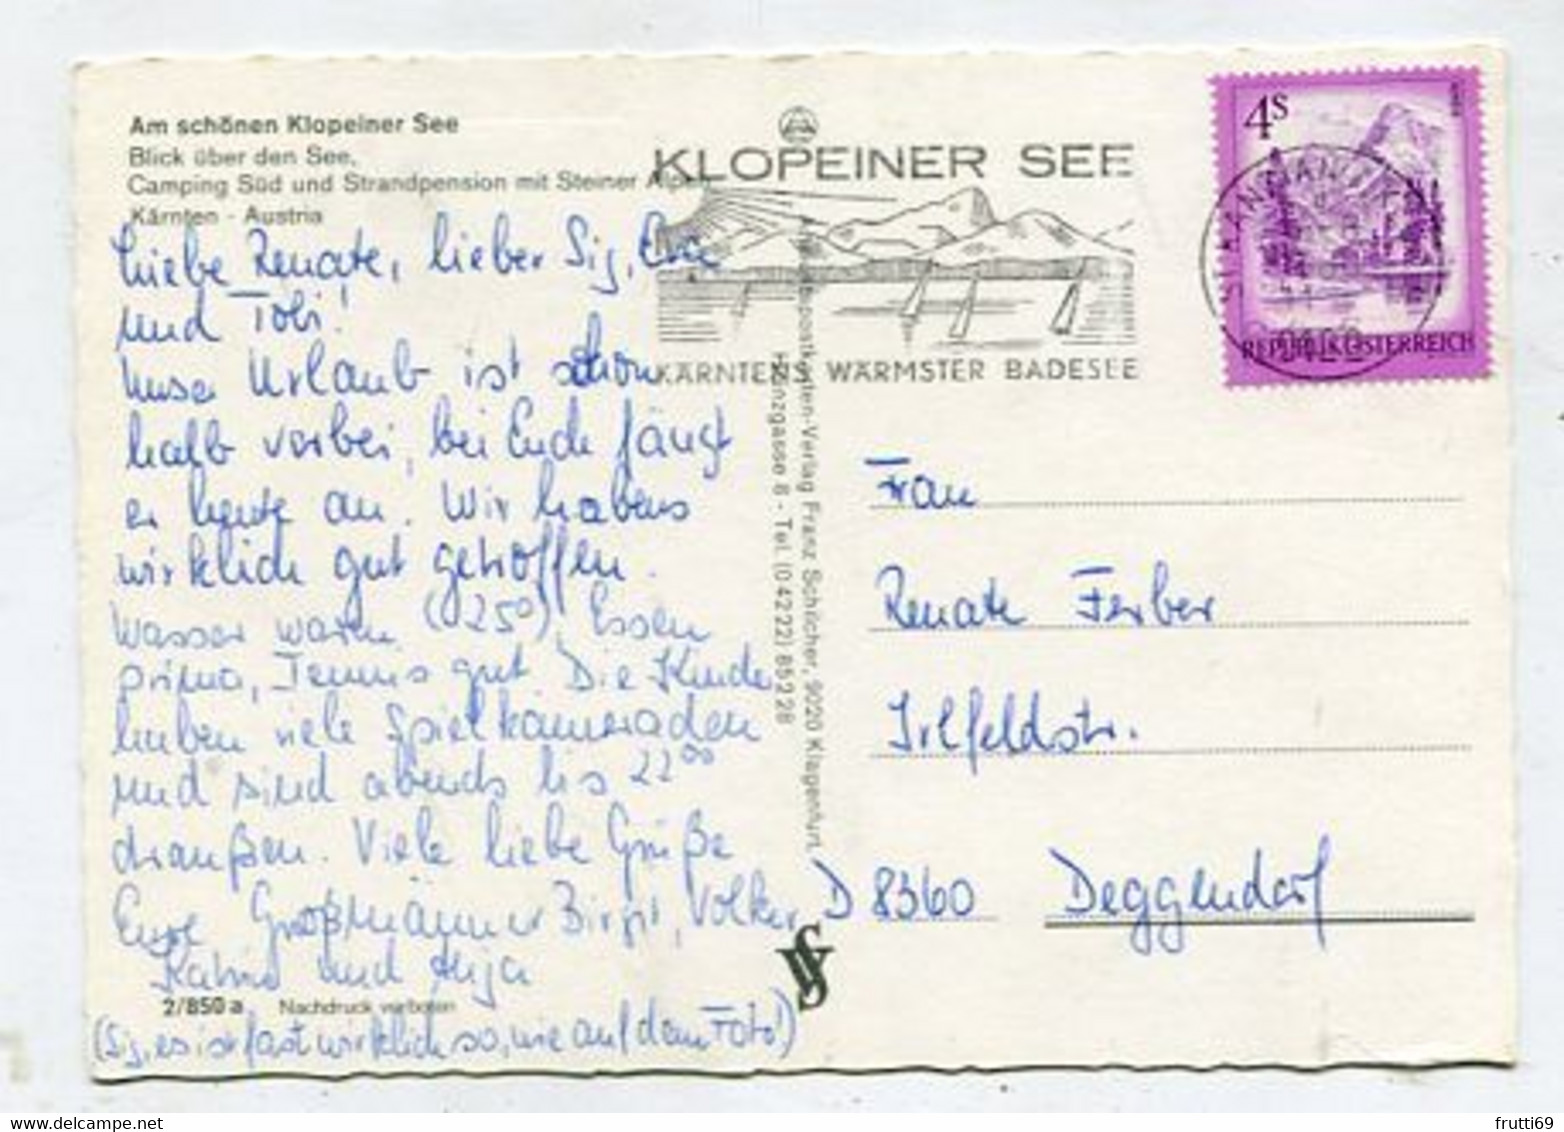 Am schönen Klopeiner See
Blick über den See,
Camping Süd und Strandpension mit Steiner Alpen
Kärnten - Austria
Liebe Renate, lieber Sig, Eva
und Tobi!
Unser Urlaub ist schon
halb vorbei, bei Euch fängt
er heute an. Wir habens
wirklich gut getroffen.
Wasser warm (25°), Essen
prima, Tennis gut. Die Kinder
haben viele Spielkameraden
und sind abends bis 22⁰⁰
draußen. Viele liebe Grüße
Eure Großmänner Birgit, Volker
und Anja
2/850 a Nachdruck verboten
(Sig, es ist fast wirklich so, wie auf dem Foto!)
KLOPEINER SEE
KÄRNTENS WÄRMSTER BADESEE
Ansichtspostkarten-Verlag Franz Schilcher, 9020 Klagenfurt,
8 - Tel. (0 42 22) 85 2 28
4 S
REPUBLIK ÖSTERREICH
Frau
Renate Ferber
Irlfeldstr.
D 8360 Deggendorf
frutti69